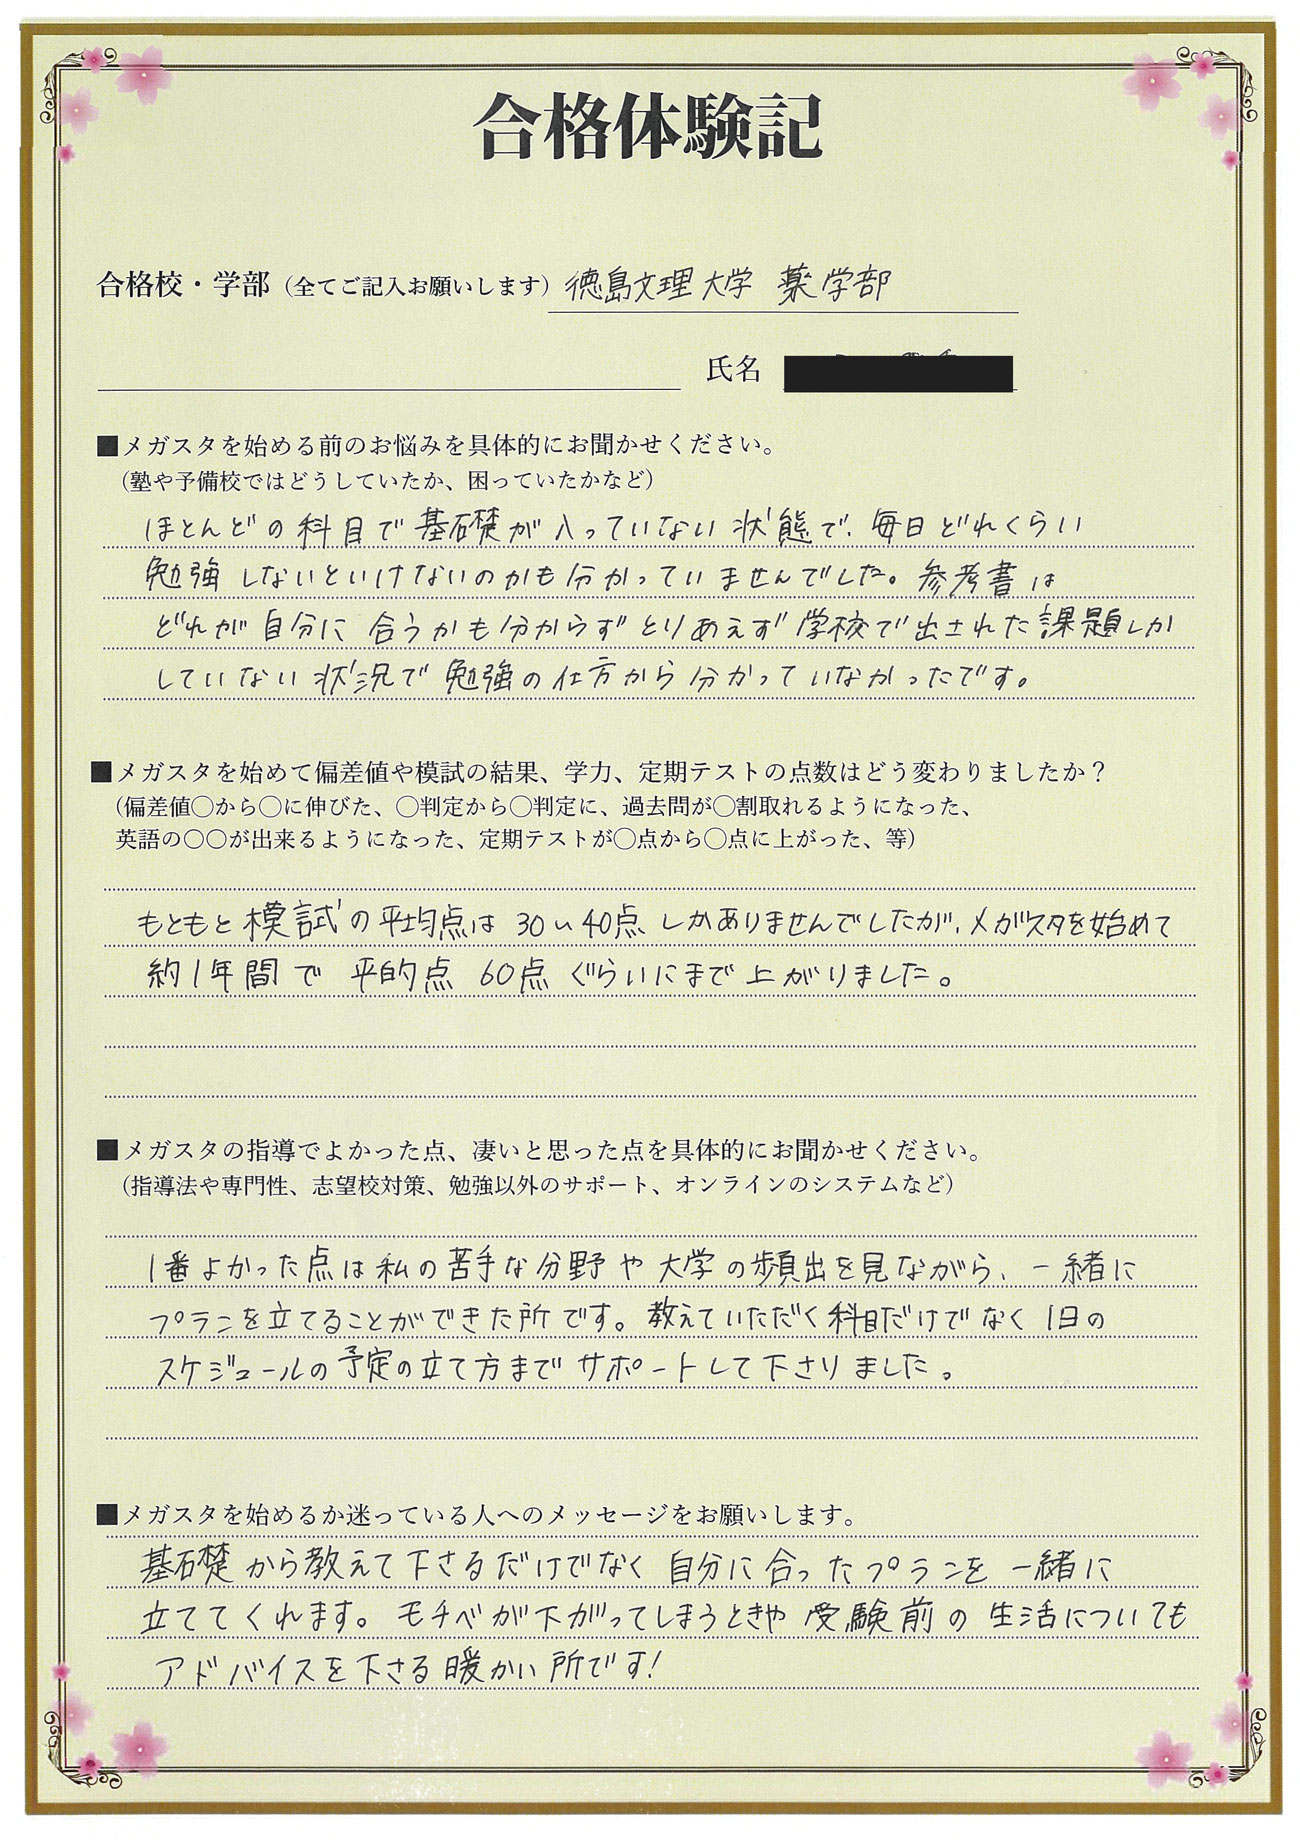 合格体験記
合格校・学部（全てご記入お願いします）徳島文理大学 薬学部
氏名
■メガスタを始める前のお悩みを具体的にお聞かせください。
（塾や予備校ではどうしていたか、困っていたかなど）
ほとんどの科目で基礎が入っていない状態で、毎日どれくらい
勉強しないといけないのかも分かっていませんでした。参考書は
どれが自分に合うかも分からずとりあえず学校で出された課題しか
していない状況で勉強の仕方から分かっていなかったです。
■メガスタを始めて偏差値や模試の結果、学力、定期テストの点数はどう変わりましたか？
（偏差値〇から〇に伸びた、〇判定から〇判定に、過去問が〇割取れるようになった、
英語の〇〇が出来るようになった、定期テストが〇点から〇点に上がった、等）
もともと模試の平均点は30〜40点しかありませんでしたが、メガスタを始めて
約1年間で 平的点 60点ぐらいにまで上がりました。
■メガスタの指導でよかった点、凄いと思った点を具体的にお聞かせください。
（指導法や専門性、志望校対策、勉強以外のサポート、オンラインのシステムなど）
1番よかった点は私の苦手な分野や大学の頻出を見ながら、一緒に
プランを立てることができた所です。教えていただく科目だけでなく1日の
スケジュールの予定の立て方までサポートして下さりました。
■メガスタを始めるか迷っている人へのメッセージをお願いします。
基礎から教えて下さるだけでなく自分に合ったプランを一緒に
立ててくれます。モチベが下がってしまうときや受験前の生活についても
アドバイスを下さる暖かい所です!